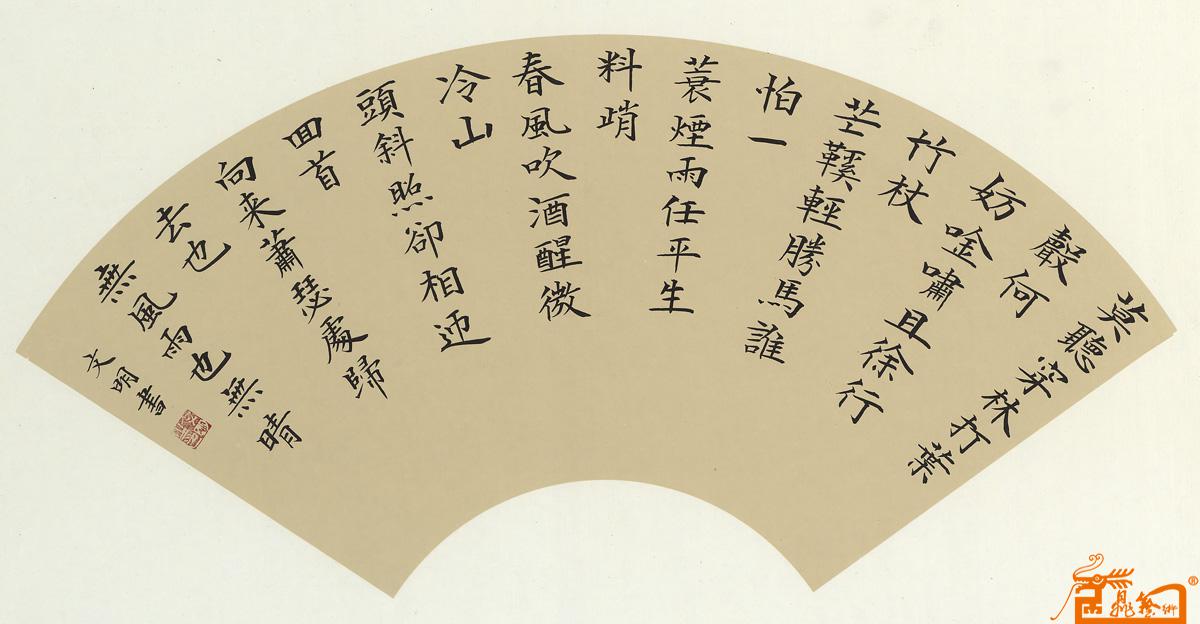 莫聽穿林打葉
聲何
妨唫嘯且徐行
竹杖
芒鞵輕勝馬誰
怕一
蓑煙雨任平生
料峭
春風吹酒醒微
冷山
頭斜照卻相迎
回首
向来蕭瑟處歸
去也
無風雨也無晴
文明書